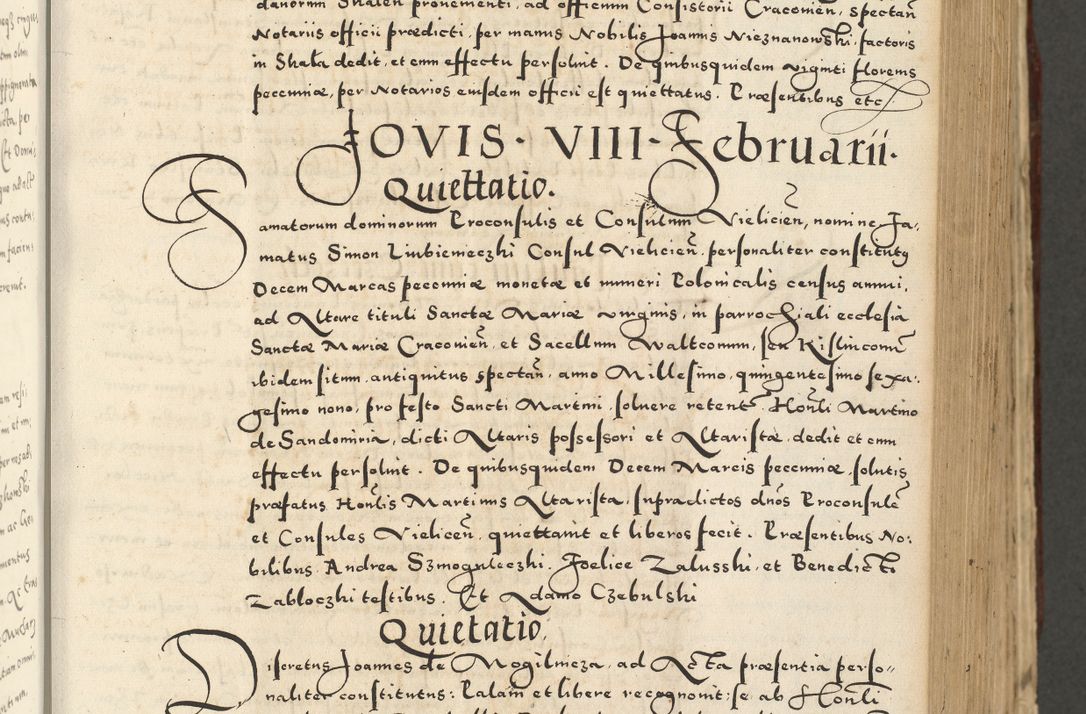 danorum Skalen̄ provenienti, ad officium Consistorii Cracovien̄, spectan̄
Notariis officii prædicti, per manus Nobilis Joannis Nieznanowski, factoris
in Skała dedit, et cum effectu persolvit. De quibusquidem viginti florenis
pecuniæ, per Notarios eiusdem officii est quiettatus. Præsentibus etc.
JOVIS · VIII · Februarii ·
Quiettatio.
Famatorum dominorum Proconsulis et Consulum Vielicien̄, nomine, Fa-
matus Simon Lubiemieczki Consul Vielicien̄. personaliter constitutus
Decem Marcas pecuniæ monetæ et numeri Polonicalis census annui,
ad Altare tituli Sanctæ Mariæ virginis, in parrochiali ecclesia
Sanctæ Mariæ Cracovien̄, et Sacellum Waltconum, seu Kislinconum
ibidem situm, antiquitus spectan̄, anno Millesimo, quingentesimo sexa-
gesimo nono, pro festo Sancti Martini, solvere retent. Honli Martino
de Sandomiria, dicti Altaris possessori et Altaristæ, dedit et cum
effectu persolvit. De quibusquidem Decem Marcis pecuniæ, solutis
præfatus Honlis Martinus Altarista, supradictos dnos Proconsulē
et Consules Vielicen̄, quiettavit et liberos fecit. Præsentibus No-
bilibus Andrea Szmoguleczki. Foelice Zalusski, et Benedicto
Zabloczki testibus. Et Adamo Czebulski
Quietatio.
Discretus Joannes de Mogilnicza, ad Acta præsentia perso-
naliter constitutus: Palam et libere recognovit: se ab Honli